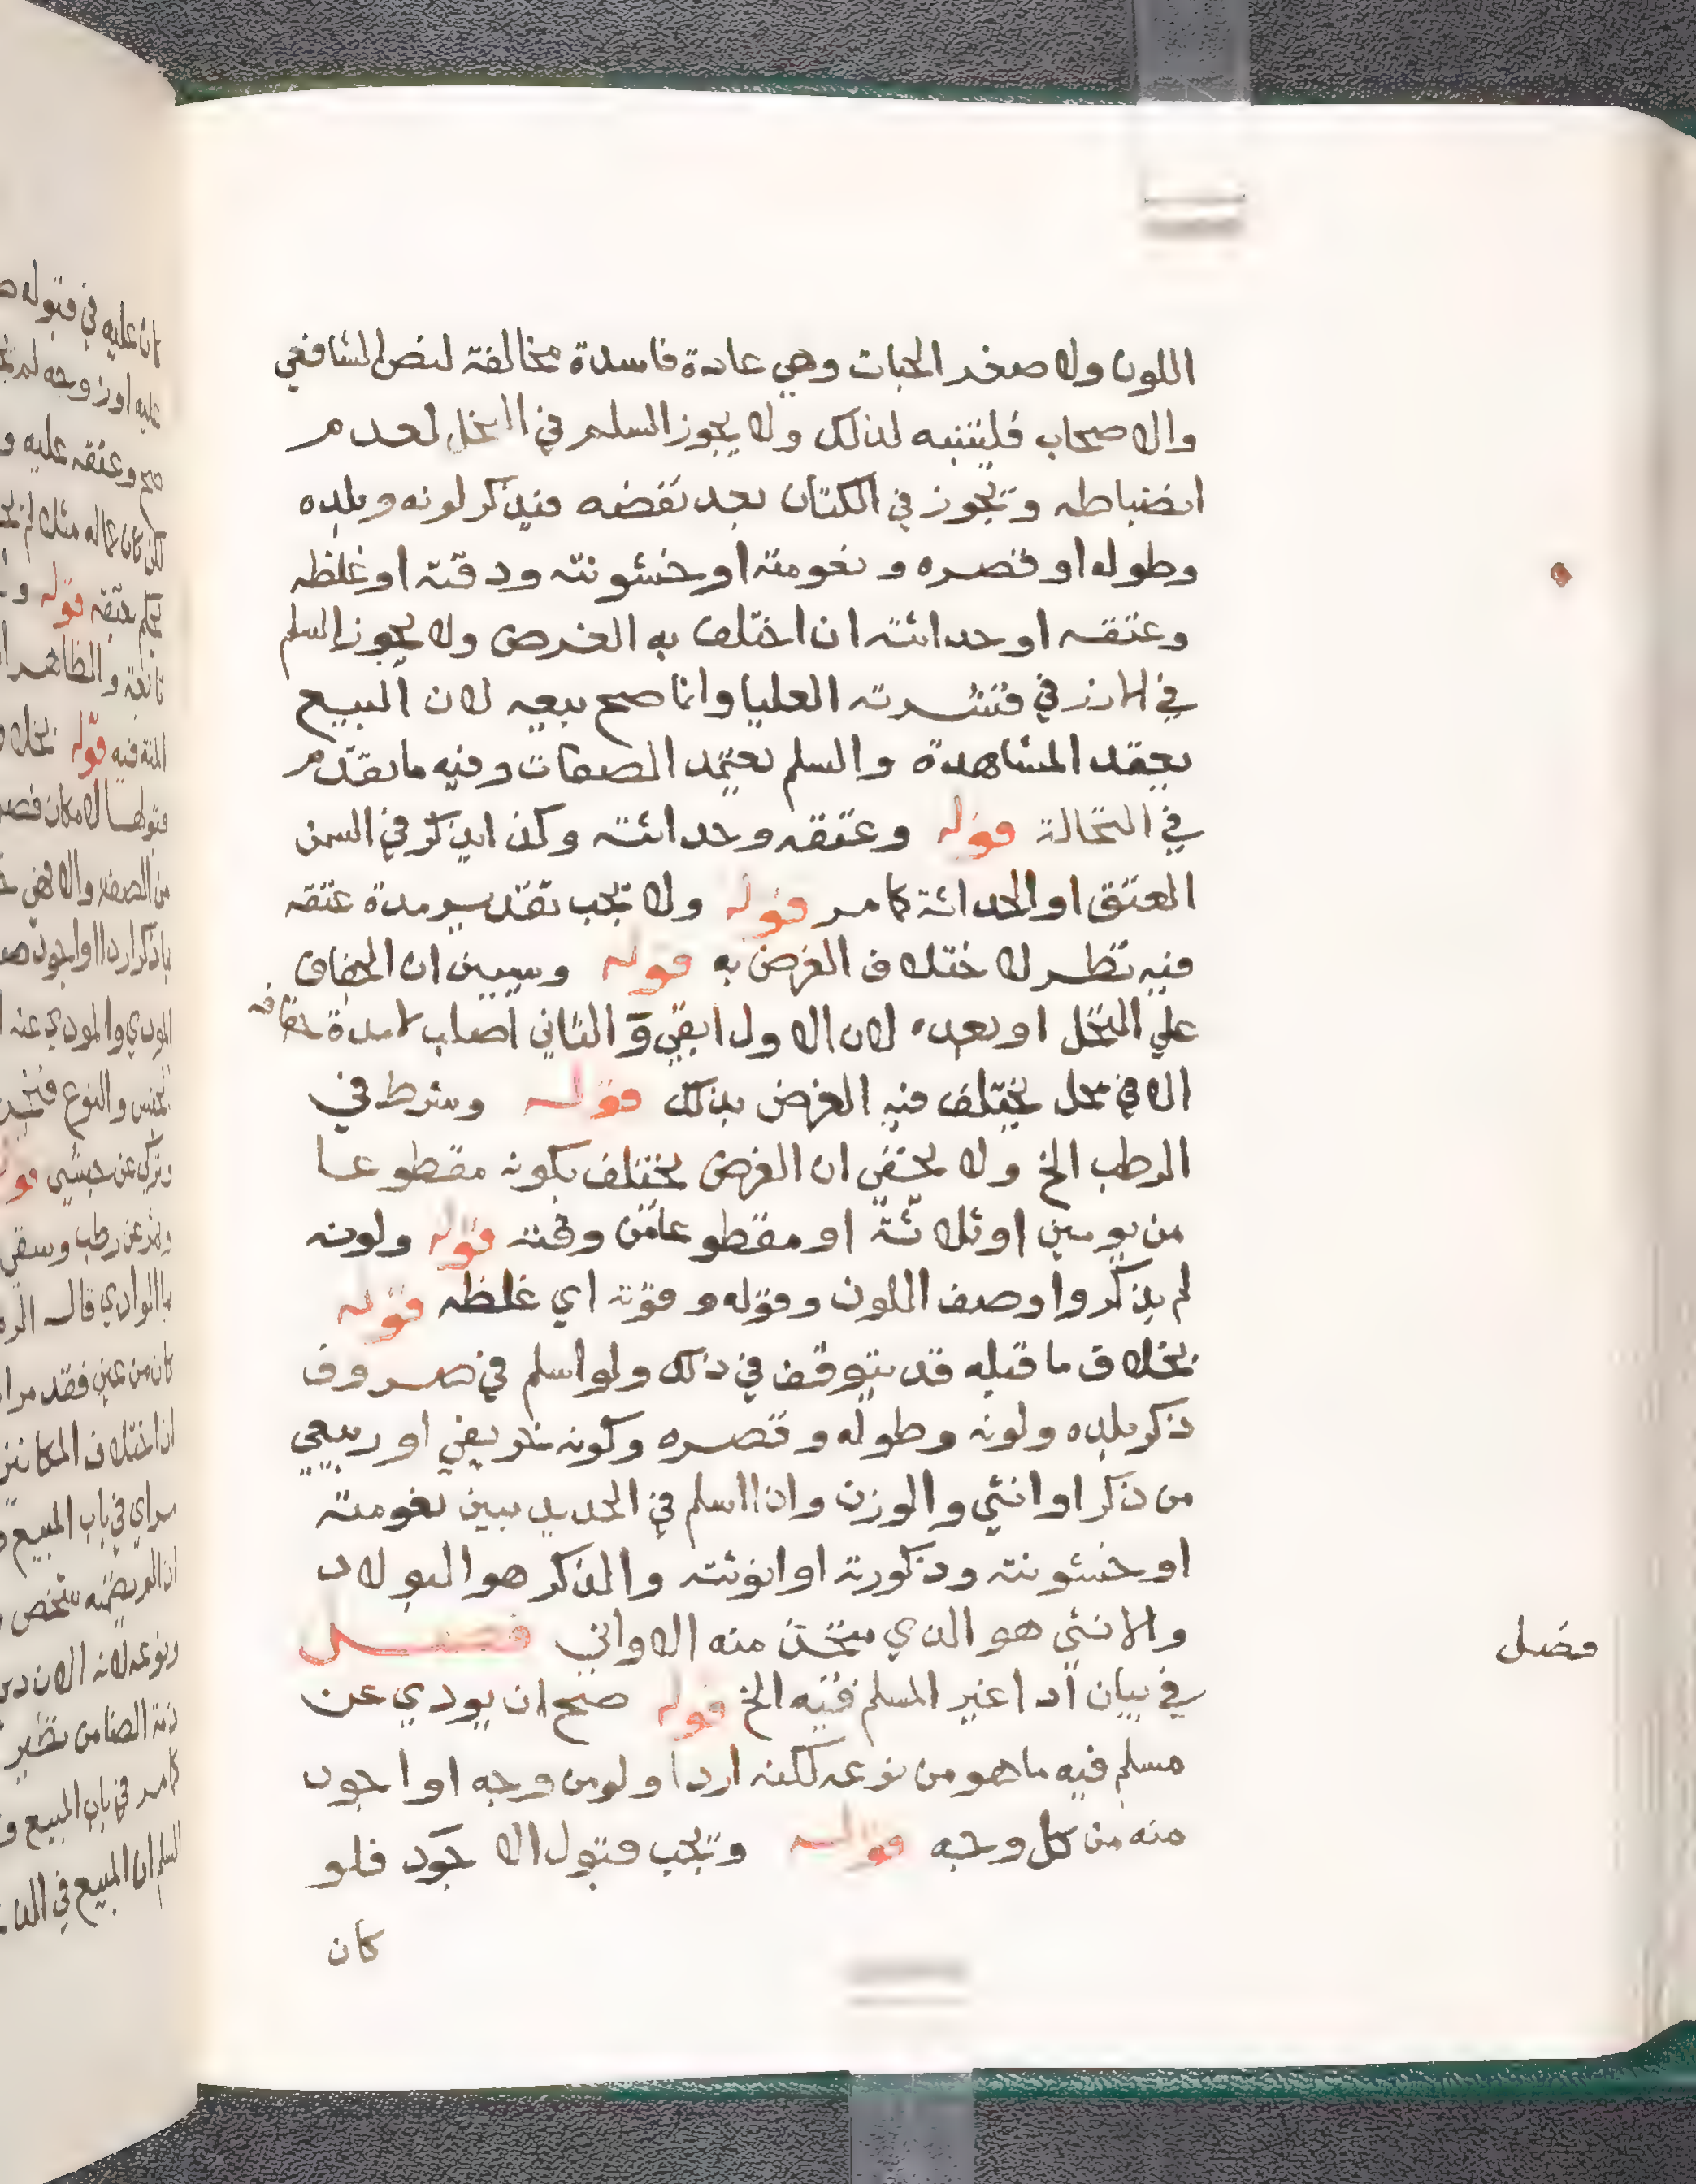 اللون ولا صغر الحبات وهي عادة فاسدة مخالفة لنص الشافعي
والاصحاب فليتنبه لذلك ولا يجوز السلم في النخل لعدم
انضباطه ويجوز في الكتان بعد نفضه فيذكر لونه وبلده
وطوله او قصره ونعومته او خشونته ودقته او غلظه
وعتقه او حداثته ان اختلف به الغرض ولا يجوز السلم
في الارز في قشرته العليا وانما صح بيعه لان البيع
يعقد المشاهدة والسلم يعتمد الصفات وفيه ما تقدم
في النخالة قوله وعتقه وحداثته وكذا يذكر في السمن
العتق او الحداثة كما مر قوله ولا يجب تقدير مدة عتقه
فيه نظر لاختلاف الغرض به قوله وسيبين ان الجفاف
علي النخل او بعده لان الاول ابقي والثاني اصلب لامدة جفافه
الا في محل يختلف فيه الغرض بذلك قوله وشرط في
الرطب الخ ولا يخفي ان الغرض يختلف بكونه مقطوعا
من يومين او ثلاثة او مقطوعا من وقته قوله ولونه
لم يذكروا وصف اللون وقوله وقوته اي غلظه قوله
بخلاف ما قبله قد يتوقف في ذلك ولو اسلم في صوف
ذكر بلده ولونه وطوله وقصره وكونه خريفي او ربيعي
من ذكر او انثي والوزن واذا اسلم في الحديد يبين نعومته
او خشونته وذكورته او انوثته والذكر هو البولاد
والانثي هو الذي يتخذ منه الاواني فصل
في بيان ادا غير المسلم فيه الخ قوله صح ان يودي عن
مسلم فيه ما هو من نوعه لكنه اردا ولو من وجه او اجود
منه من كل وجه قوله ويجب قبول الاجود فلو
كان
فصل